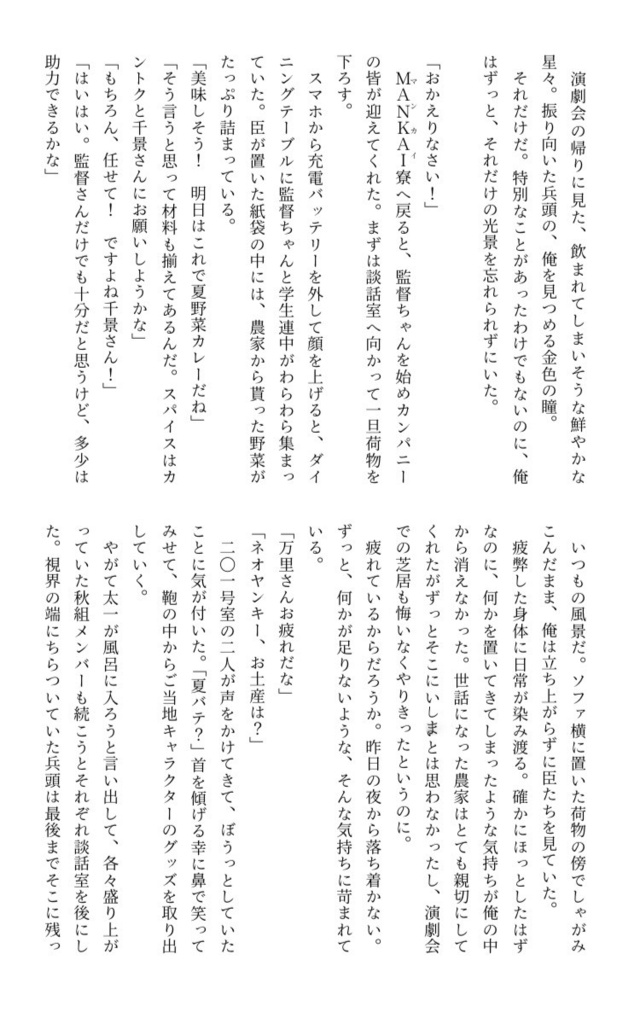 演劇会の帰りに見た、飲まれてしまいそうな鮮やかな
星々。振り向いた兵頭の、俺を見つめる金色の瞳。
それだけだ。特別なことがあったわけでもないのに、俺
はずっと、それだけの光景を忘れられずにいた。
「おかえりなさい！」
MANKAI寮へ戻ると、監督ちゃんを始めカンパニー
マンカイ
の皆が迎えてくれた。まずは談話室へ向かって一旦荷物を
下ろす。
スマホから充電バッテリーを外して顔を上げると、ダイ
ニングテーブルに監督ちゃんと学生連中がわらわら集まっ
ていた。臣が置いた紙袋の中には、農家から貰った野菜が
たっぷり詰まっている。
「美味しそう！　明日はこれで夏野菜カレーだね」
「そう言うと思って材料も揃えてあるんだ。スパイスはカ
ントクと千景さんにお願いしようかな」
「もちろん、任せて！　ですよね千景さん！」
「はいはい。監督さんだけでも十分だと思うけど、多少は
助力できるかな」
いつもの風景だ。ソファ横に置いた荷物の傍でしゃがみ
こんだまま、俺は立ち上がらずに臣たちを見ていた。
疲弊した身体に日常が染み渡る。確かにほっとしたはず
なのに、何かを置いてきてしまったような気持ちが俺の中
から消えなかった。世話になった農家はとても親切にして
くれたがずっとそこにいしまとは思わなかったし、演劇会
での芝居も悔いなくやりきったというのに。
疲れているからだろうか。昨日の夜から落ち着かない。
ずっと、何かが足りないような、そんな気持ちに苛まれて
いる。
「万里さんお疲れだな」
「ネオヤンキー、お土産は？」
二〇一号室の二人が声をかけてきて、ぼうっとしていた
ことに気が付いた。「夏バテ？」首を傾げる幸に鼻で笑って
みせて、鞄の中からご当地キャラクターのグッズを取り出
していく。
やがて太一が風呂に入ろうと言い出して、各々盛り上が
っていた秋組メンバーも続こうとそれぞれ談話室を後にし
た。視界の端にちらついていた兵頭は最後までそこに残っ